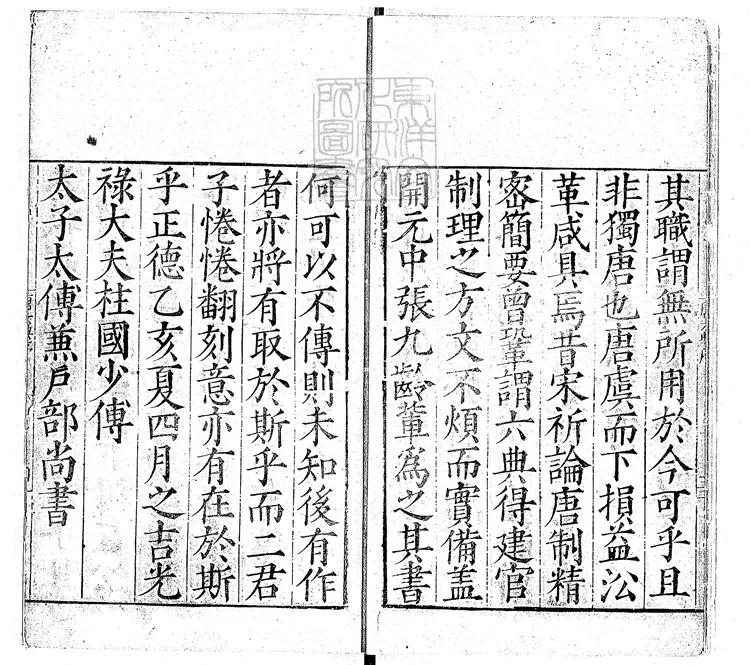 其職謂無所用於今可乎且
非獨唐也唐虞而下損益㳂
革咸具焉昔宋祈論唐制精
宻簡要曾鞏謂六典得建官
制理之方文不煩而實備盖
開元中張九齡軰爲之其書
何可以不傳則未知後有作
者亦將有取於斯乎而二君
子惓惓翻刻意亦有在於斯
乎正德乙亥夏四月之吉光
禄大夫柱國少傅
太子太傅兼戶部尚書